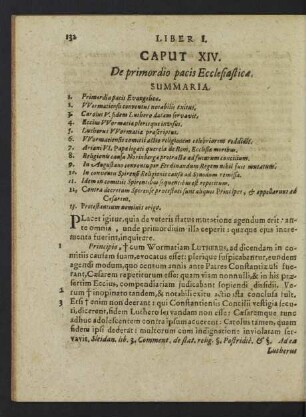 132 LIBER I.
CAPUT XIV.
De primordio pacis Ecclesiasticæ.
SUMMARIA.
1. Primordio pacis Evangelicæ.
2. VVormatiensis conventus notabilis exitus.
3. Carolus V. fidem Luthero datam servavit.
4. Eccius VVormatia plerisque intensus.
5. Lutherus VVormatia proscriptus.
6. VVormatiensis comitia actus religiosum celebriorem reddidit.
7. Adriani VI. Papæ legati querela de Rom. Ecclesiæ moribus.
8. Religionis causa Noribergæ protracta ad futurum concilium.
9. In Augustano conventu per Ferdinandum Regem nihil fuit mutatum.
10. In conventu Spirensi Religionis causa ad Synodum remissa.
11. Idem in comitiis Spirensibus sequentibus est repetitum.
12. Contra decretum Spirense protestati sunt aliqui Principes, & appellarunt ad
Cæsarem.
13. Protestantium nominis origo.
PLacet igitur, quia de veteris status mutatione agendum erit, an-
te omnia, unde primordium illa ceperit, quæque ejus incre-
menta fuerint, inquirere.
1 Principio, † cum Wormatiam LUTHERUS, ad dicendam in co-
mitiis causam suam, evocatus esset: plerique suspicabantur, eundem
agendi modum, quo centum annis ante Patres Constantienses fue-
rant, Cæsarem repetiturum esse: quam viam nonnulli, & in his præ-
sertim Eccius, compendiariam judicabant sopiendi dissidii. Ve-
2 rum † inopinato tamen, & notabili exitu actio ista conclusa fuit.
3 Etsi † enim non deerant, qui Constantiensis Concilii vestigia secu-
ti, dicerent, fidem Luthero servandam non esse: Cæsaremque tunc
adhuc adolescentem contra ipsum armassent: Carolus tamen, quam
fidem ipsi dederat, multorum cum indignatione inviolatam ser-
vavit, Sleidan. lib. 3. Comment. de stat. relig. §. Postridie. & §. Adeo
Lutherus